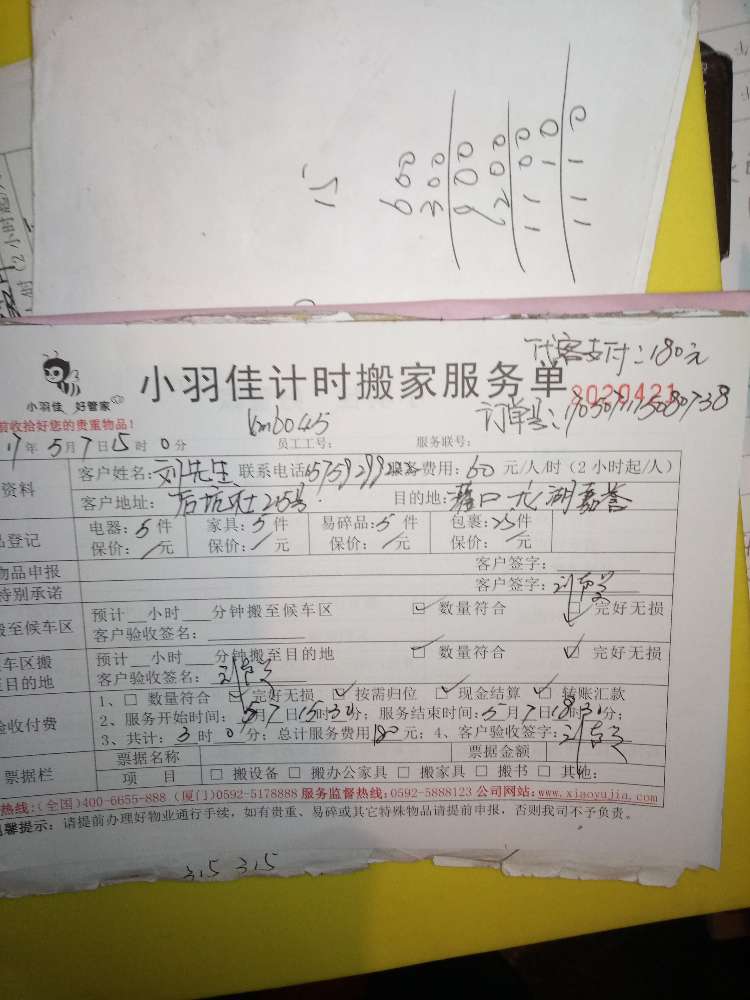 代客支付：180元
小羽佳 好管家
小羽佳计时搬家服务单
8020421
前收拾好您的贵重物品！
订单号：
17年5月7日15时0分 员工工号： 服务联号：
资料 客户姓名：刘先生 联系电话 服务费用：60元/人/时（2小时起/人）
客户地址：后坑 215号 目的地：
品登记 电器：5件 家具：5件 易碎品：5件 包裹：25件
保价：/元 保价：/元 保价：/元 保价：/元
物品申报 客户签字：
特别承诺 客户签字：
搬至候车区 预计__小时___分钟搬至候车区 ☑ 数量符合 ☑ 完好无损
客户验收签名：
车区搬 预计__小时___分钟搬至目的地 ☑ 数量符合 ☑ 完好无损
至目的地 客户验收签名：
验收付费 1、□ 数量符合 ☑ 完好无损 ☑ 按需归位 ☑ 现金结算 ☑ 转账汇款
2、服务开始时间：5月7日15时30分；服务结束时间：5月7日18时30分；
3、共计：3时0分；总计服务费用180元；4、客户验收签字：
票据栏 票据名称 票据金额
项 目 □ 搬设备 □ 搬办公家具 □ 搬家具 □ 搬书 □ 其他：
热线：（全国）400-6655-888（厦门）0592-5178888 服务监督热线：0592-5888123 公司网站：www.xiaoyujia.com
温馨提示：请提前办理好物业通行手续，如有贵重、易碎或其它特殊物品请提前申报，否则我司不予负责。
315 315